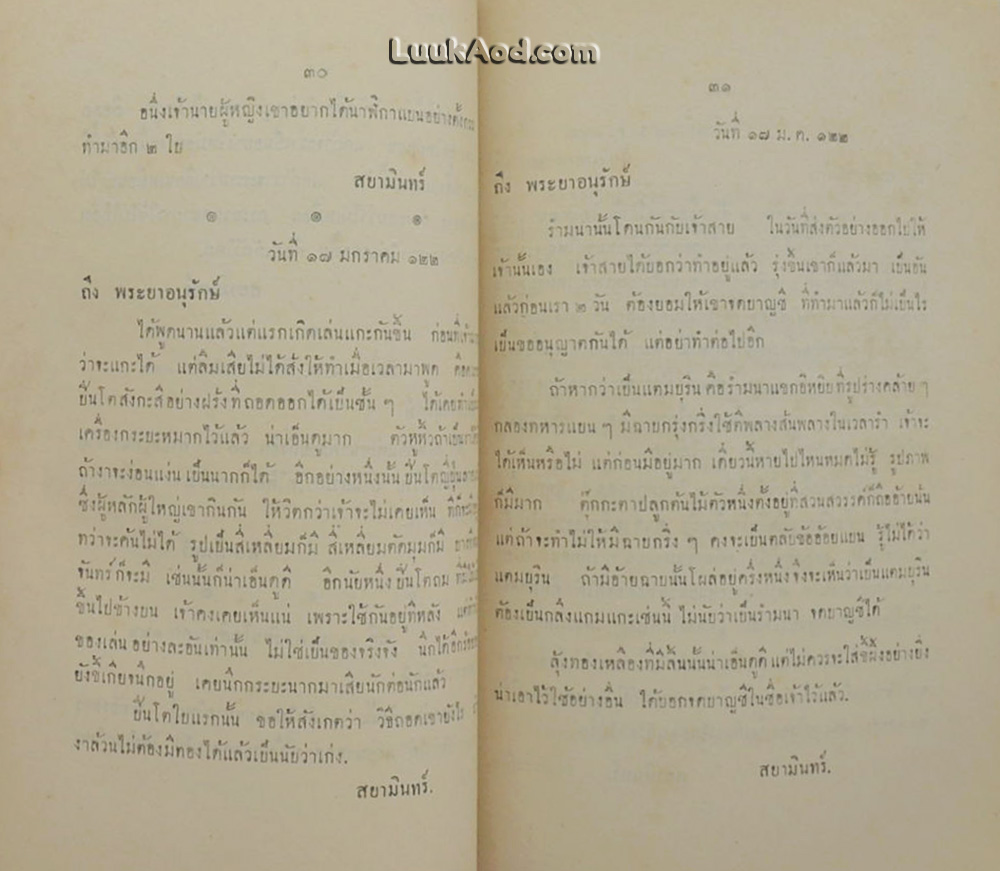 LuukAod.com
๓๐
อนึ่งเจ้านายผู้หญิงเขาอยากได้นาฬิกาแขนอย่างตั้ง
ทำมาอีก ๒ ใบ
สยามินทร์
๑ ๑ ๑
วันที่ ๑๗ มกราคม ๑๒๒
ถึง พระยาอนุรักษ์
ได้พูดนานแล้วแต่แรกเกิดเล่นแกะกันขึ้น ก่อนที่
ว่าจะแกะได้ แต่ลืมเสียไม่ได้สั่งให้ทำเมื่อเวลามาพูด คือ
ปิ่นโตสังกะสีอย่างฝรั่งที่ถอดออกได้เป็นชั้น ๆ ได้เคยทำเป็น
เครื่องกระยะหมากไว้แล้ว น่าเอ็นดูมาก ตัวหูหิ้วถ้าเป็น
ถ้างาจะง่อนแง่นเป็นนากก็ได้ อีกอย่างหนึ่งนั้น ปิ่นโตญี่ปุ่น
ซึ่งผู้หลักผู้ใหญ่เขากินกัน ให้วิตกว่าเจ้าจะไม่เคยเห็น
ทว่าจะค้นไม่ได้ รูปเป็นสี่เหลี่ยมก็มี สี่เหลี่ยมตัดมุมก็มี
จันทร์ก็จะมี เช่นนั้นก็น่าเอ็นดูดี อีกนัยหนึ่งปิ่นโตถม
ขึ้นไปข้างบน เจ้าคงเคยเห็นแน่ เพราะใช้กันอยู่ที่หลัง
ของเล่นอย่างละอันเท่านั้น ไม่ใช่เป็นของจริงจัง นึกได้อีกร้อย
ยังขี้เกียจนึกอยู่ เคยนึกกระยะนากมาเสียนักต่อนักแล้ว
ปิ่นโตใบแรกนั้น ขอให้สังเกตว่า วิธีถอดเขายังไร
งาล้วนไม่ต้องมีทองได้แล้วเป็นนัยว่าเก่ง.
สยามินทร์.
๓๑
วันที่ ๑๗ ม.ค. ๑๒๒
ถึง พระยาอนุรักษ์
รำมนานั้นโดนกันกับเจ้าสาย ในวันที่ส่งตัวอย่างออกไปให้
เจ้านั้นเอง เจ้าสายได้บอกว่าทำอยู่แล้ว รุ่งขึ้นเขาก็แล้วมา เป็นอัน
แล้วก่อนเรา ๒ วัน ต้องยอมให้เขาจดยาญชี ที่ทำมาแล้วก็ไม่เป็นไร
เป็นขออนุญาตกันได้ แต่อย่าทำต่อไปอีก
ถ้าหากว่าเป็นแตมยุริน คือรำมนาแขกอิหยิบที่รูปร่างคล้าย ๆ
กลองทหารแบน ๆ มีฉายกรุ๋งกริ๋งใช้ตีพลางสั่นพลางในเวลารำ เจ้าจะ
ได้เห็นหรือไม่ แต่ก่อนมีอยู่มาก เดี๋ยวนี้หายไปไหนหมดไม่รู้ รูปภาพ
ก็มีมาก ตุ๊กกะตาปลูกต้นไม้ตัวหนึ่งตั้งอยู่ที่สวนสวรรค์ก็ถืออ้ายนั่น
แต่ถ้าจะทำไม่ให้มีฉายกริ๋ง ๆ คงจะเป็นตลับช้ออ้อยแบน รู้ไม่ได้ว่า
แตมยุริน ถ้ามีอ้ายฉายนั้นโผล่อยู่ครึ่งหนึ่ง จึงจะเห็นว่าเป็นแตมยุริน
ต้องเป็นกลึงแกมแกะเช่นนี้ ไม่นับว่าเป็นรำมนา จดยาญชีได้
ลุ้งทองเหลืองที่มีลิ้นนั้นน่าเอ็นดูดี แต่ไม่ควรจะใส่ขี้ผึ้งอย่างยิ่ง
น่าเอาไว้ใช้อย่างอื่น ได้บอกจดยาญชีในชื่อเจ้าไว้แล้ว.
สยามินทร์.